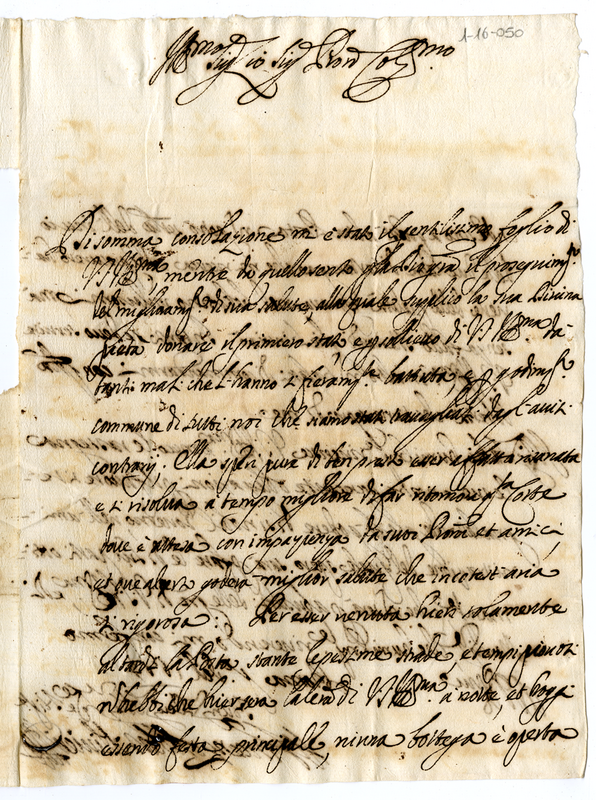 1-16-050
Ill.mo Sig.r io Sig.r Pron Col.mo
Di somma consolazione mi è stato il gentilissimo foglio di
V.S. Ill.ma, mentre da quello sento il proseguim.to
del miglioram.to di sua salute, alla quale supplico la sua Divina
donare il primiero stato, e sollievo di V.S. Ill.ma da
tanti mali che l'hanno sì fieram.te battuta, e godim.to
commune di tutti noi che siamo stati travagliati dagl'avvisi
contrarij. Ella speri pure di ben presto esser affatto risanata
e si risolva a tempo migliore di far ritorno a q.ta Corte
dove è attesa con impazienza da suoi Proni et amici
et ove al cert. goderà miglior salute che in cotest'aria
sì rigorosa: Per esser venuta hieri solamente
al tardi la Posta stante le pessime strade, e tempi piovosi
n'hebbi che hiersera la lra di V.S. Ill.ma a notte, et hoggi
essendo festa principale, niuna bottega è aperta